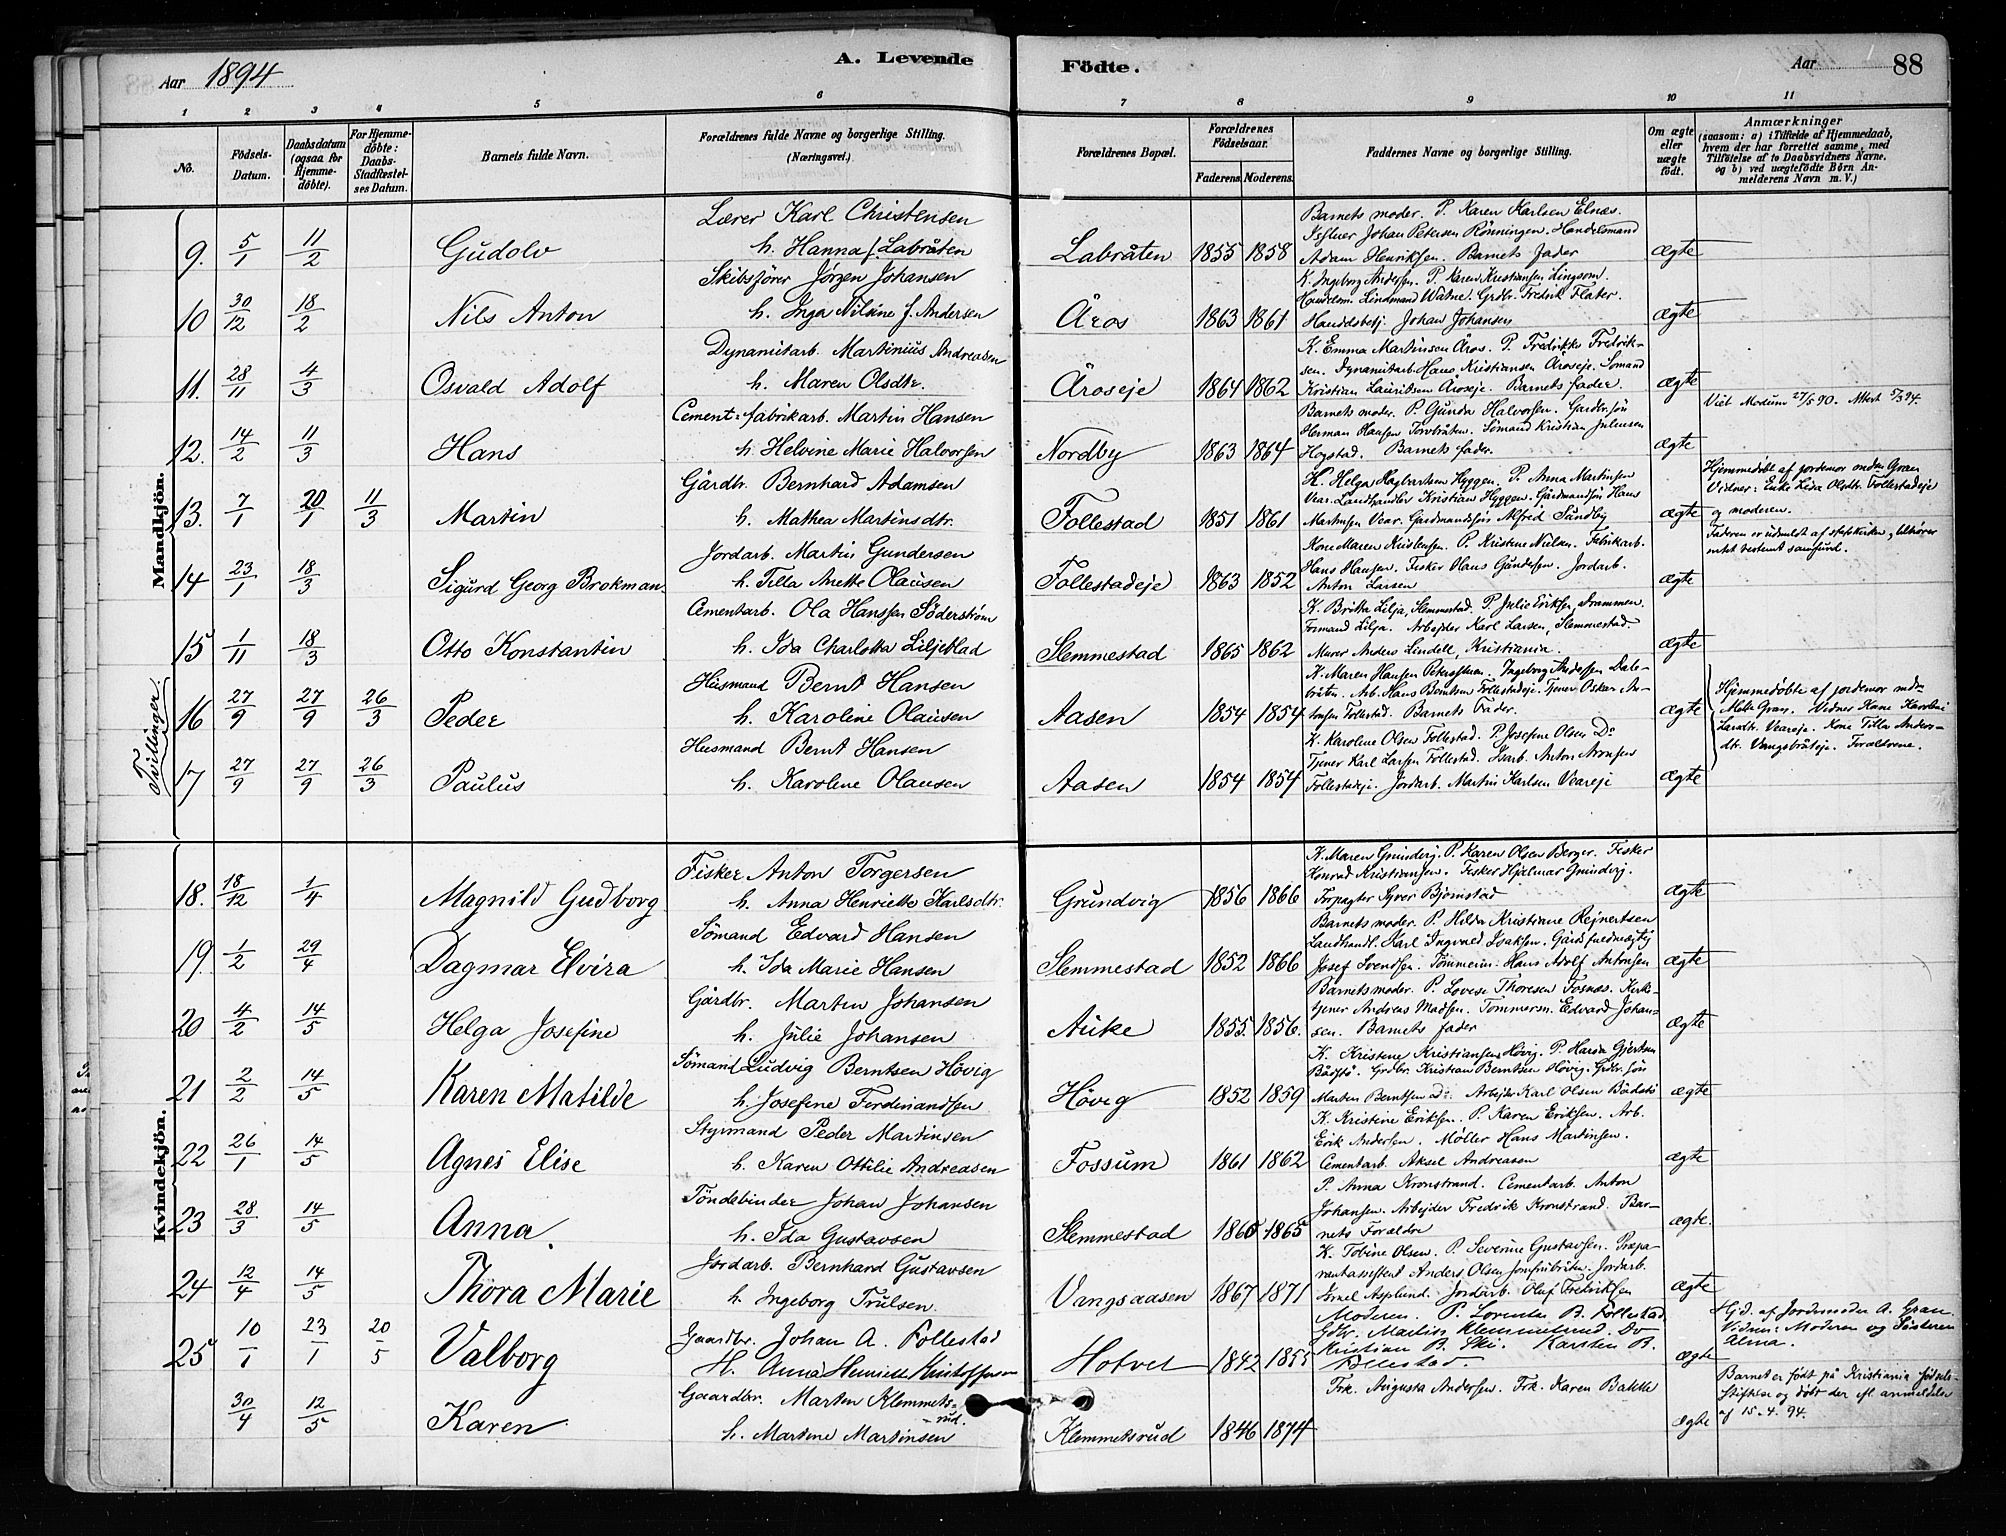 Aar 1894
A. Levende
Födte.
Aar
88
1 2 3 4 5 6 7 8 9 10 11
No.
Födsels-Datum.
Daabsdatum (ogsaa for Hjemme-döbte).
For Hjemme-döbte: Daabs-Stadfæstel-ses Datum.
Barnets fulde Navn.
Forældrenes fulde Navne og borgerlige Stilling. (Næringsvei.)
Forældrenes Bopæl.
Forældrenes Födselsaar.
Faderens. Moderens.
Faddernes Navne og borgerlige Stilling.
Om ægte eller uægte födt.
Anmærkninger
(saasom: a) i Tilfælde af Hjemmedaab, hvem der har forrettet samme, med Tilföielse af to Daabsvidners Navne, og b) ved uægtefödte Börn An-melderens Navn m. V.)
Mandkjön.
9. 5/1 11/2 Gudolv
Lærer Karl Christensen
h. Hanna f. Labråten
Labråten 1855 1858
Barnets moder. P. Karen Karlsen Elnæs.
Johan Petersen Rönningen. Handelsmand
Adam Henriksen. Barnets fader
ægte
10 30/12 18/2 Nils Anton
Skibsförer Jörgen Johansen
h. Inga Nilsine f. Andersen
Åros 1863 1861
K. Ingeborg Andersen. P. Karen Kristiansen Lingsom.
Handelsm. Lindmand Watne. Grdbr. Fredrik Flater.
Handelsbetj. Johan Johansen
ægte
11. 28/11 4/3 Osvald Adolf
Dynamitarb. Martinius Andreasen
h. Maren Olsdtr.
Åroseje 1864 1862
K. Emma Martinsen Åros. P. Fredrikke Fredrik-
sen. Dynamitarb. Hans Kristiansen Åroseje. Sömand
Kristian Lauritsen Åroseje. Barnets fader.
ægte
Viet Modum 27/5 90. Attest 5/3 94.
12. 14/2 11/3 Hans
Cement-fabrikarb. Martin Hansen
h. Helvine Marie Halvorsen
Nordby 1863 1864
Barnets moder. P. Gunda Halvorsen. Gardbr.sön
Herman Hansen Torvbråten. Sömand Kristian Julensen
Hogstad. Barnets fader.
ægte
13. 7/1 20/1 11/3 Martin
Gårdbr. Bernhard Adamsen
h. Mathea Martinsdtr.
Follestad 1851 1861
K. Helga Hagbartsen Hyggen. P. Anna Martinsen
Vear. Landhandler Kristian Hyggen. Gårdmandssön Hans
Martinsen Vear. Gardmandssön Alfred Sundby
ægte
Hjemmedöbt af jordemor mdm Gran
Vidner: Enke Lisa Olsdtr. Follestadeje
og moderen.
Faderen er udmeldt af statskirken, tilhörer
intet bestemt samfund.
14 23/1 18/3 Sigurd Georg Brokman
Jordarb. Martin Gundersen
h. Tilla Anette Olausen
Follestadeje 1863 1852
Kone Maren Kristensen. P. Kristine Nielsen. Fabrikarb.
Hans Hansen. Fisker Hans Gundersen. Jordarb.
Anton Larsen
ægte
15 1/11 18/3 Otto Konstantin
Cementarb. Ola Hanssen Söderström
h. Ida Charlotta Liljeblad
Slemmestad 1865 1862
K. Britta Lilja, Slemmestad. P. Julie Eriksen, Drammen.
Formand Lilja. Arbejder Karl Larsen, Slemmestad.
Murer Anders Lindell, Kristiania.
ægte
Tvillinger.
16 27/9 27/9 26/3 Peder
Husmand Bernt Hansen
h. Karoline Olausen
Aasen 1854 1854
K. Maren Hansen Ingeborg Andersen Dale-
bråten. Arb. Hans Berntsen Follestadeje. Tjener Oskar An-
tonsen Follestad. Barnets fader.
ægte
Hjemmedöbte af jordemor mdm
Mette Gran. Vidner Kone Karoline
Laudtr. Veareje. Kone Tilla Anders-
dtr. Vangsbråteje. Forældrene.
17 27/9 27/9 26/3 Paulus
Husmand Bernt Hansen
h. Karoline Olausen
Aasen 1854 1854
K. Karoline Olsen Follestad. P. Josefine Olsen Do
Tjener Karl Larsen Follestad. Isarb. Anton Aronsen
Follestadeje. Jordarb. Martin Karlsen Veareje
ægte
Kvindekjön.
18. 18/12 1/4 Magnild Gudborg
Fisker Anton Torgersen
h. Anna Henriette Karlsdtr.
Grundvig 1856 1866
K. Maren Grundvig. P. Karen Olsen Berger. Fisker
Konrad Kristiansen. Fisker Hjalmar Grundvig.
Forpagter Syver Bjornstad
ægte
19. 1/2 29/4 Dagmar Elvira
Sömand Edvard Hansen
h. Ida Marie Hansen
Slemmestad 1852 1866
Barnets moder. P. Hilda Kristiane Rejnertsen
Landhandl. Karl Ingvald Isaksen. Gårdsfuldmægtig
Josef Svendsen. Tömmerm. Hans Adolf Antonsen
ægte
20 4/2 14/5 Helga Josefine
Gårdbr. Martin Johansen
h. Julie Johansen
Auke 1855. 1856.
Barnets moder. P. Lovise Thoresen Fosnæs. Kirke-
tjener Andreas Madsen. Tommerm. Edvard Johan-
sen. Barnets fader
ægte
21 2/2 14/5 Karen Matilde
Sömand Ludvig Berntsen Hövig
h. Josefine Ferdinandsen
Hövig 1852 1859
K. Kristine Kristiansen Hövig. P. Harda Gjertsen
Bödstö. Grdbr. Kristian Berntsen Hövig. Grdbr. sön
Morten Berntsen do. Arbejder Karl Olsen Bödstö
ægte
22 26/1 14/5 Agnes Elise
Styrmand Peder Martinsen
h. Karen Ottilie Andreasen
Fossum 1861 1862
K. Kristine Eriksen. P. Karen Eriksen. Arb.
Erik Andersen. Möller Hans Martinsen.
Cementarb. Aksel Andreasen
ægte
23 28/3 14/5 Anna.
Töndebinder Johan Johansen
h. Ida Gustavsen
Slemmestad 1865 1865
P. Anna Kronstrand. Cementarb. Anton
Johansen. Arbejder Fredrik Kronstrand. Bar-
nets Forældre
ægte.
24 12/4 14/5 Thora Marie
Jordarb. Bernhard Gustavsen
h. Ingeborg Trulsen.
Vangsaasen 1867 1871
K. Tobine Olsen. P. Severine Gustavsen. Præpa-
rantassistent Anders Olsen Jonsrubråten. Jordarb.
Asplund. Jordarb. Olaf Fredriksen
ægte
25 10/1 23/1 20/5 Valborg
Gaardbr. Johan A. Follestad
H. Anna Henriette Kristoffersen
Hotvet 1842 1855
Moderen. P. Lorentse B. Follestad
Gdbr. Martin Klemmetsrud Do
Kristian B. Ski. Karsten B.
Follestad.
ægte
Hjd. af Jordemoder A. Gran
Vidner: Moderen og Sösteren
Alma.
30/4 12/5 Karen
Gaardbr. Morten Klemmets-
rud.
h. Martine Martinsen
Klemmetsrud 1846 1874
Frk. Augusta Andersen. Frk. Karen Bakke
ægte
Barnet er födt på Kristiania födsels-
stiftelse og döbt der efl. anmeldelse
af 15.4.94.